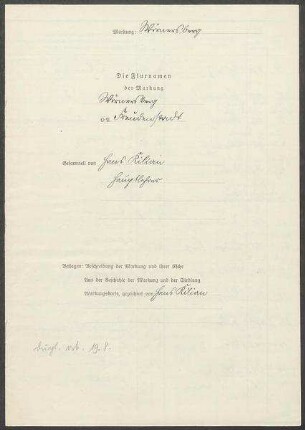 Markung: Wörnersberg
Die Flurnamen
der Markung
Wörnersberg
OA. Freudenstadt
Gesammelt von Hans Kilian
Hauptlehrer
Beilagen: Beschreibung der Markung und ihrer Esche
Aus der Geschichte der Markung und der Siedlung
Markungskarte, gezeichnet von Hans Kilian